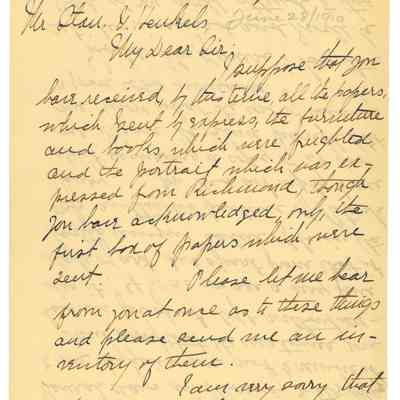 June 28/1910
Mr Stan. V. Henkels
My Dear Sir,
I suppose that you
have received, by this time, all the papers,
which I sent by express, the furniture
and books, which were freighted
and the portrait which was ex-
pressed from Richmond, though
you have acknowledged, only, the
first box of papers which were
sent. Please let me hear
from you at once as to these things
and please send me an in-
ventory of them.
I am very sorry that